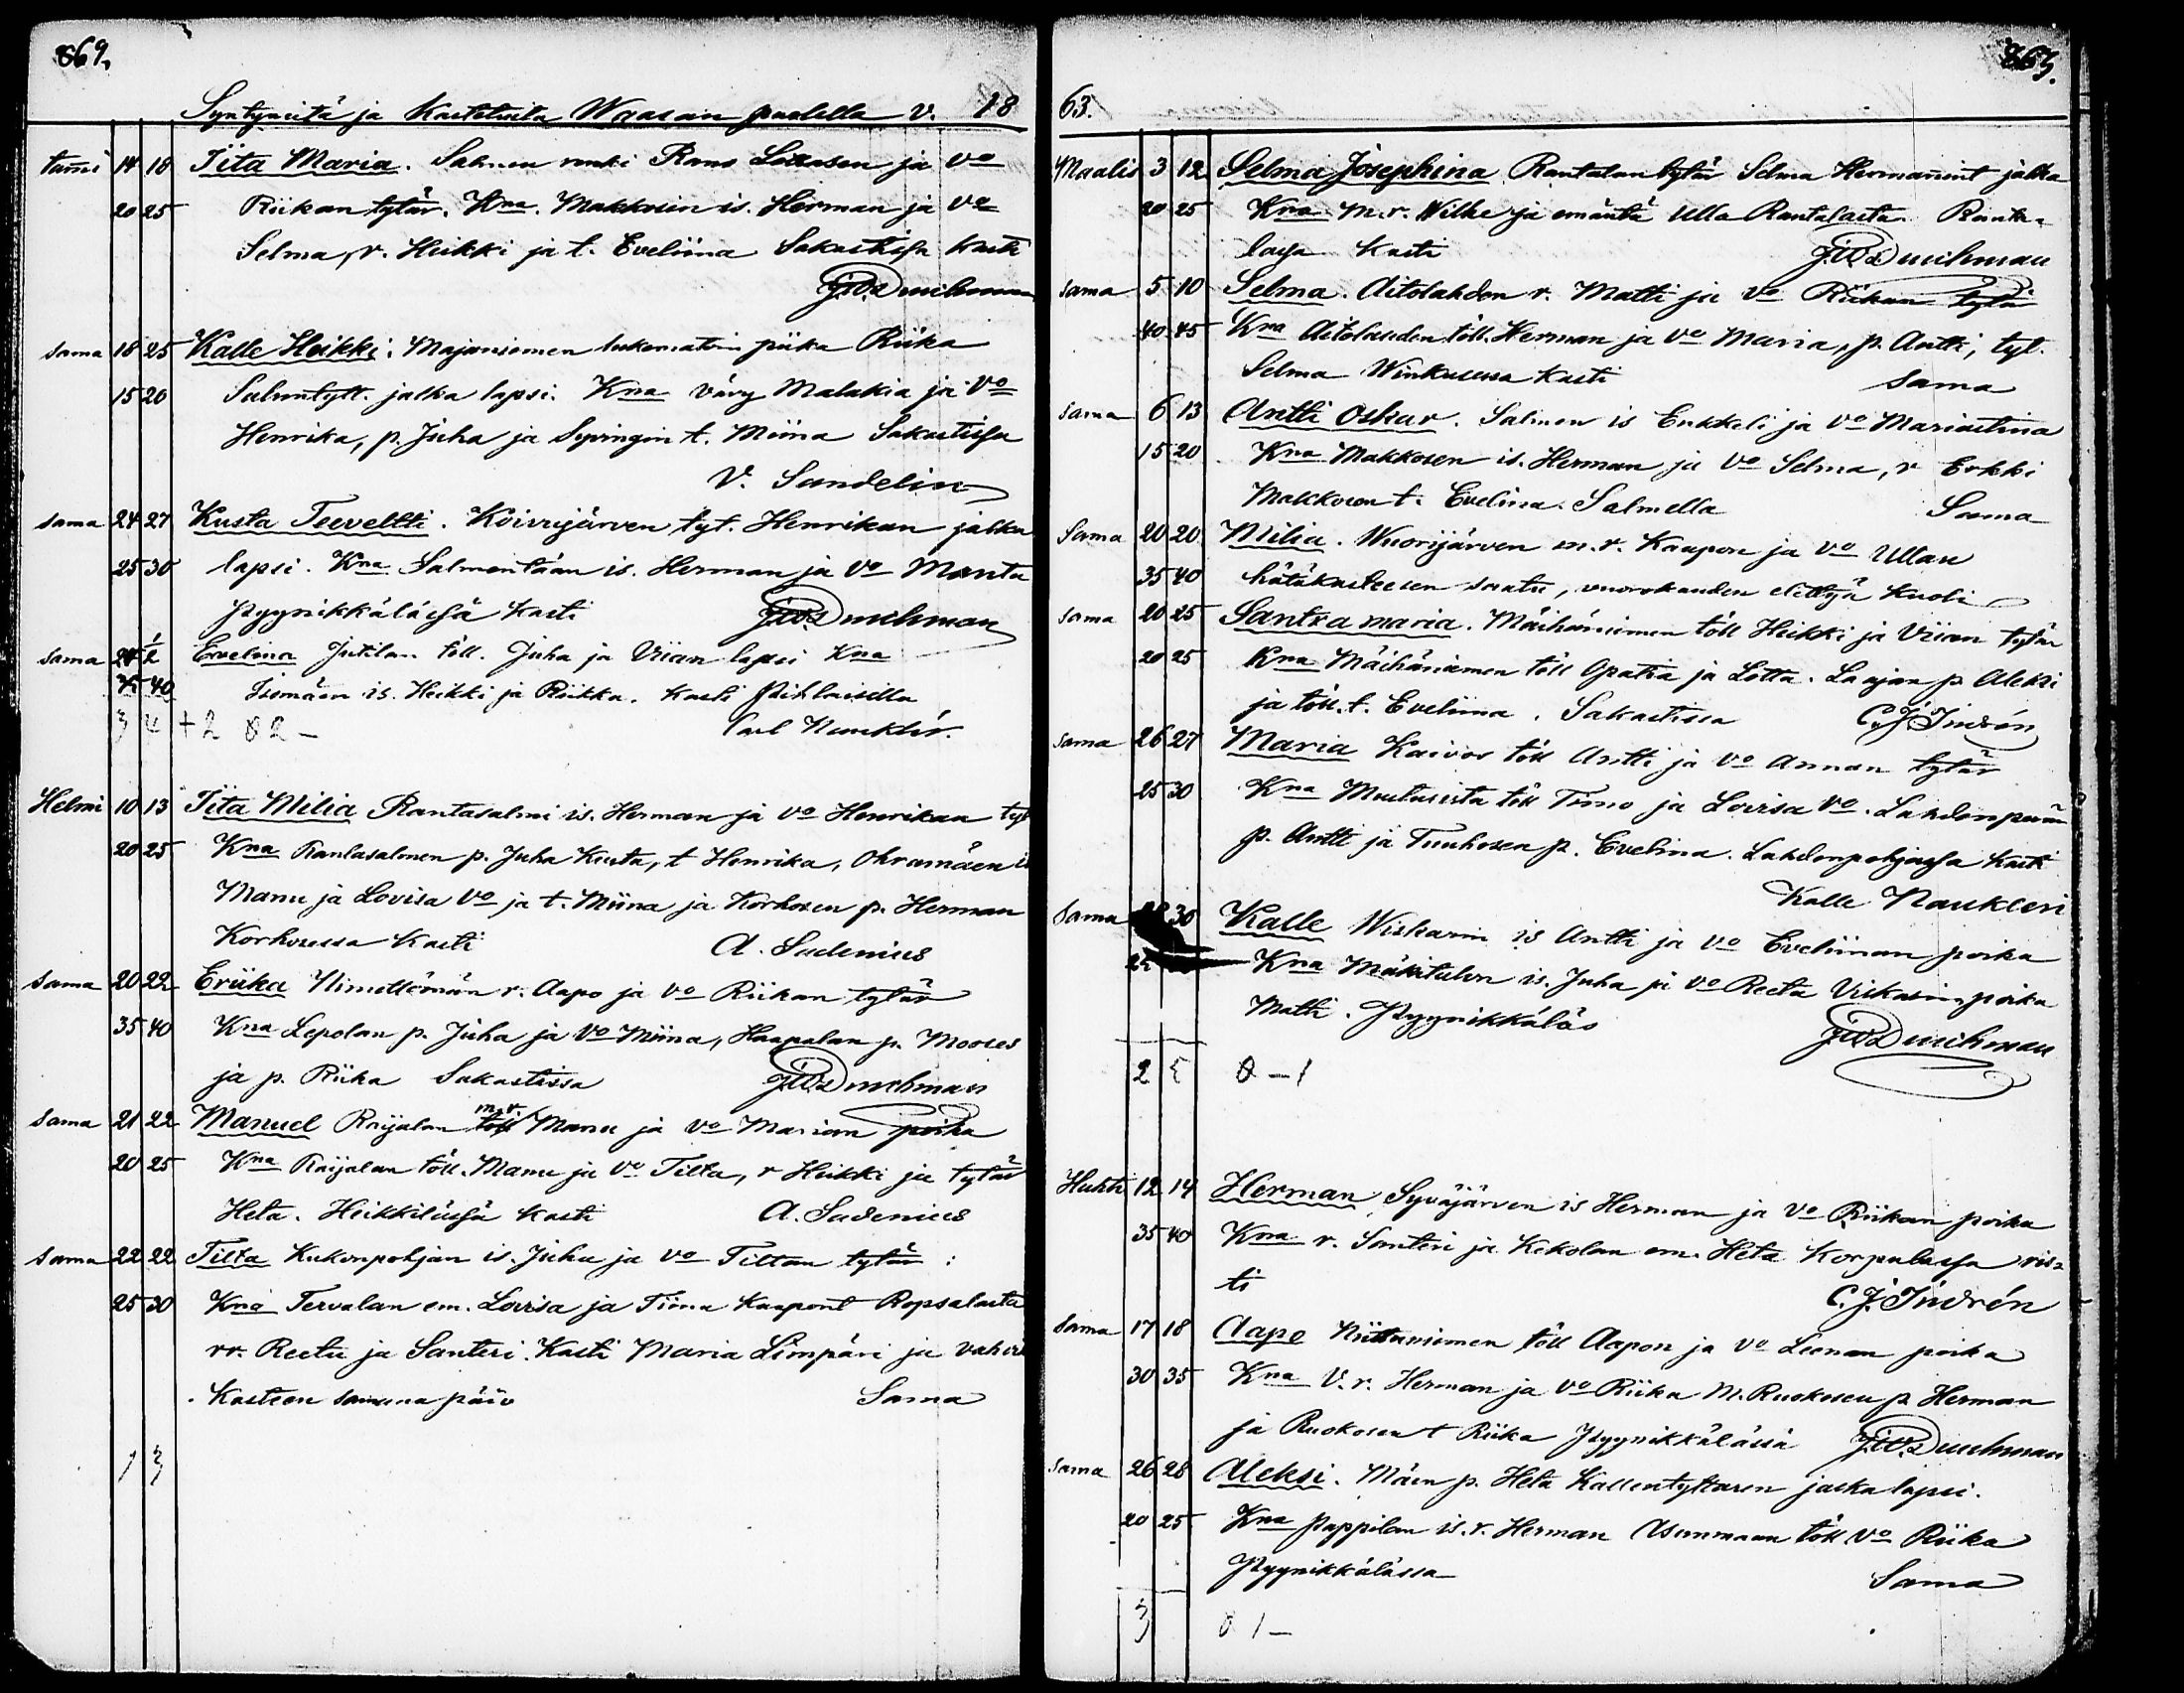 869.
Syntyneitä ja Kastetuita Waasan puolella v. 18
tami 14 18 Iita Maria. Salmen renki Rano ja vo
20 25 Riikan tytär. Kna. Makkosen is. Herman ja vo
Selma, r. Heikki ja t. Eveliina Sakastissa kasti
sama 18 25 Kalle Heikki. Majaniemen piika Riika
15 20 jalka lapsi. Kna väry Malakia ja vo
Henrika, p. Juha ja t. Miina Sakastissa
V. Sandelin
sama 24 27 Kusta Teeveltti. Koivujärven tyt. Henrikan jalka
25 30 lapsi. Kna Salmentään is. Herman ja vo Manta
Pyynikkälässä kasti
sama Evelina Jutilan töll. Juha ja Viian lapsi Kna
40 is. Heikki ja Riikka. kasti Pihlaisilla
Carl
Helmi 10 13 Iita Milia Rantasalmi is. Herman ja vo Henrikan tyt
20 25 Kna Rantasalmen p. Juha Kusta, t Henrika, Ohramäen is
Manu ja Lovisa vo ja t. Miina ja Korhosen p. Herman
Korhosessa kasti A. Sadenius
sama 20 22 Eriika Nimettömän r. Aapo ja vo Riikan tytär
35 40 Kna Lepolan p. Juha ja vo Miina, Haapalan p. Mooses
ja p. Riika Sakastissa
sama 21 22 Manuel Raijalan m.r. Manu ja vo Marian poika
20 25 Kna Raijalan töll. Manu ja vo Tilta, r Heikki ja tytär
Heta. Heikkilässä kasti A. Sadenius
sama 22 22 Tilta Kukonpohjan is. Juha ja vo Tiltan tytär:
25 30 Kna Tervalan em. Lovisa ja Tiina Kaapont Ropsalasta
rr. Reetu ja Santeri. Kasti Maria Limpäri ja vahvis
Kasteen samana päiv Sama
63.
Maalis 3 12 Selma Josephina Rantalan tytär Selma Hermannint jalka
20 25 Kna m.r. Wilhe ja emäntä Ulla Rantalasta. Ranta-
lassa kasti
sama 5 10 Selma. Aitolahden r. Matti ja vo Riikan tytär
40 45 Kna Aitolahden töll. Herman ja vo Maria, p. Antti, tyt.
Selma Winkusessa kasti sama
sama 6 13 Antti Oskar. Salmen is Enkkeli ja vo Mariastina
15 20 Kna Makkosen is. Herman ja vo Selma, r Erkki
Makkosen t. Evelina. Salmella Sama
Sama 20 20 Milia. Wuorijärven m.r. Kaapon ja vo Ullan
35 40 hätäkasteesen saatu, vuorokauden elettyä kuoli
sama 20 25 Santra Maria. Mäihäniemen töll Heikki ja Viian tytär
20 25 Kna Mäihäniemen töll Opatia ja Lotta. Laajan p Aleksi
ja töll. t. Eveliina. Sakastissa C. J. Indrén
sama 26 27 Maria Kaivos töll Antti ja vo Annan tytär
25 30 Kna töll Timo ja Lovisa vo. Lahdenperän
p. Antti ja Tuuhosen p. Evelina. Lahdenpohjassa kasti
Kalle Naukleri
sama 30 Kalle Wiskarin is Antti ja vo Eveliinan poika
25 Kna Mäkitalon is. Juha ja vo Reeta Viskarin poika
Matti. Pyynikkäläs
Huhti 12 14 Herman Syväjärven is Herman ja vo Riikan poika
35 40 Kna r. Santeri ja Kekolan em. Heta Korpulassa ris-
ti
C. J. Indrén
sama 17 18 Aape Niittuniemen töll Aapon ja vo Leenan poika
30 35 Kna V. r. Herman ja vo Riika M. Ruokosen p Herman
ja Ruokosen t Riika Pyynikkälässä
sama 26 28 Aleksi. Mäen p. Heta Kallentyttären jalka lapsi.
20 25 Kna Pappilan is. r. Herman Asunmaan töll vo Riika
Pyynikkälässa Sama